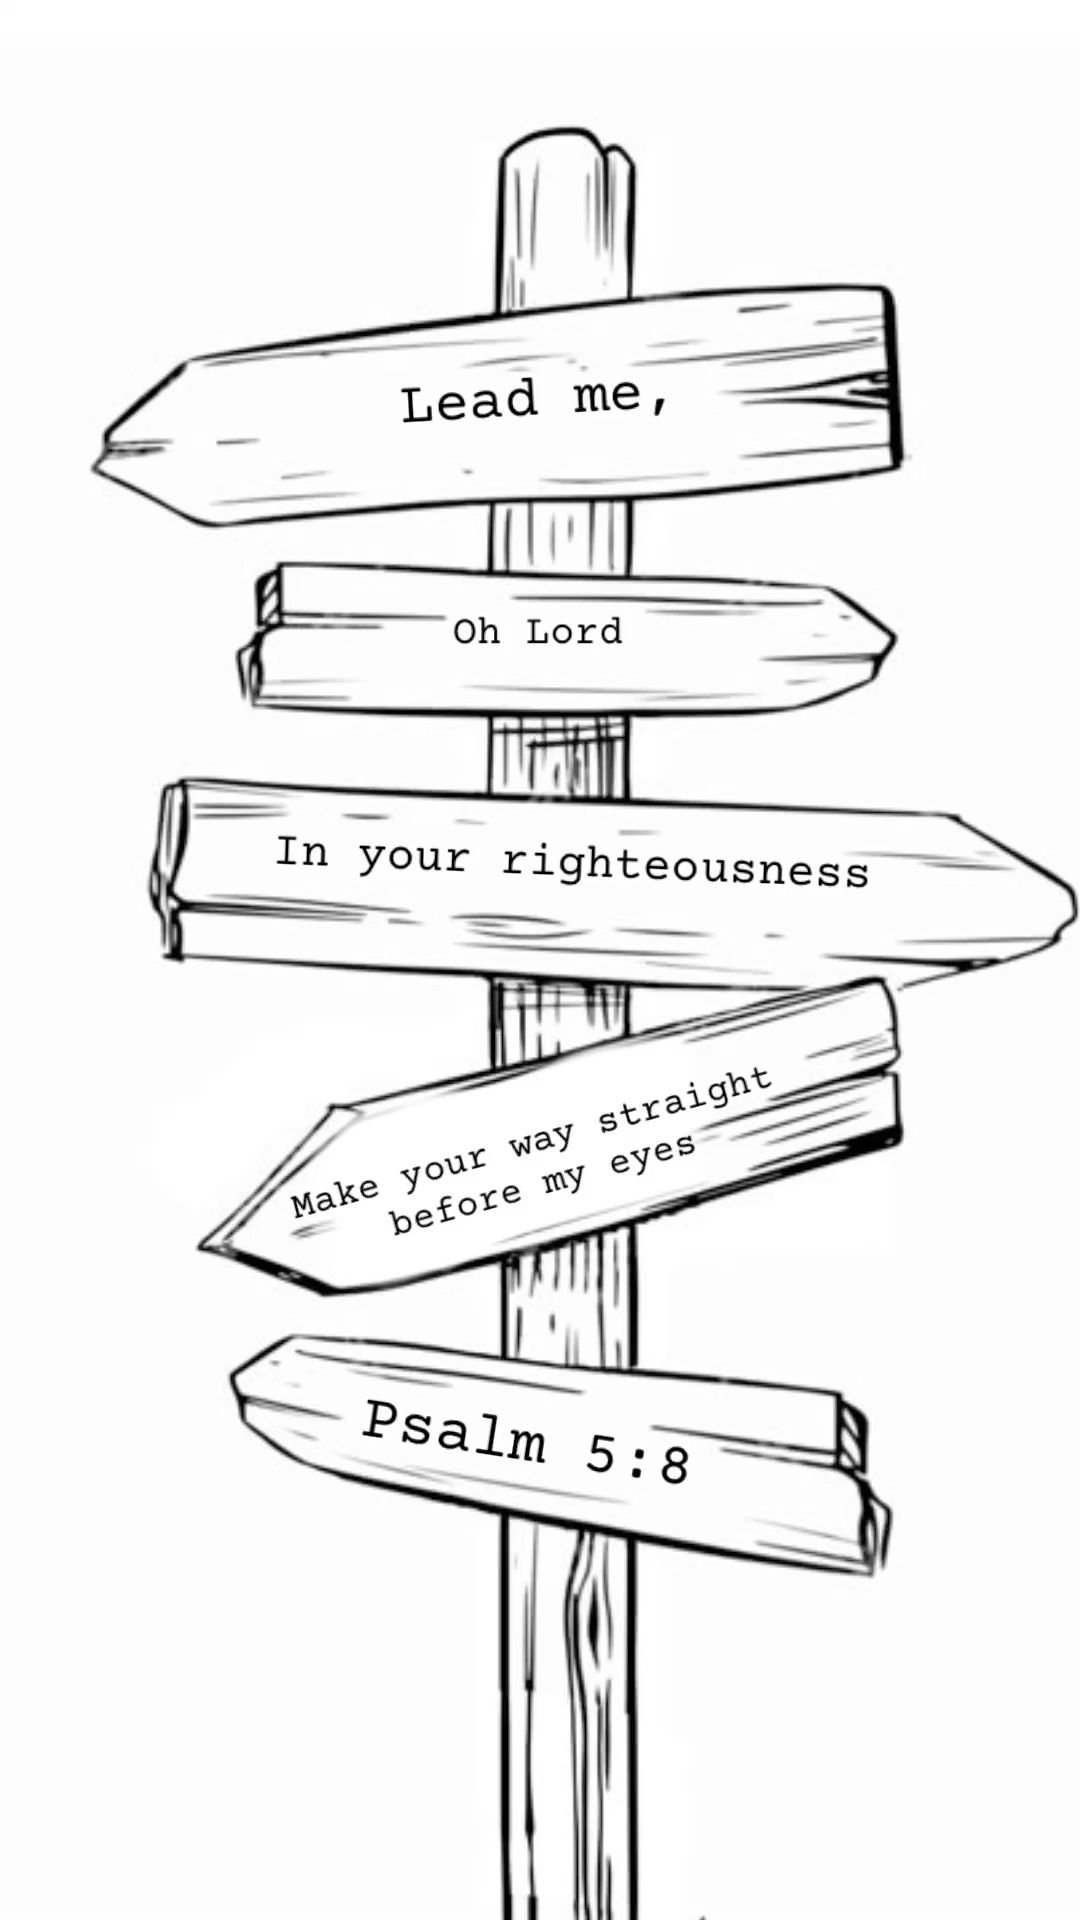 Lead me,
Oh Lord
In your righteousness
Make your way straight
before my eyes
Psalm 5:8